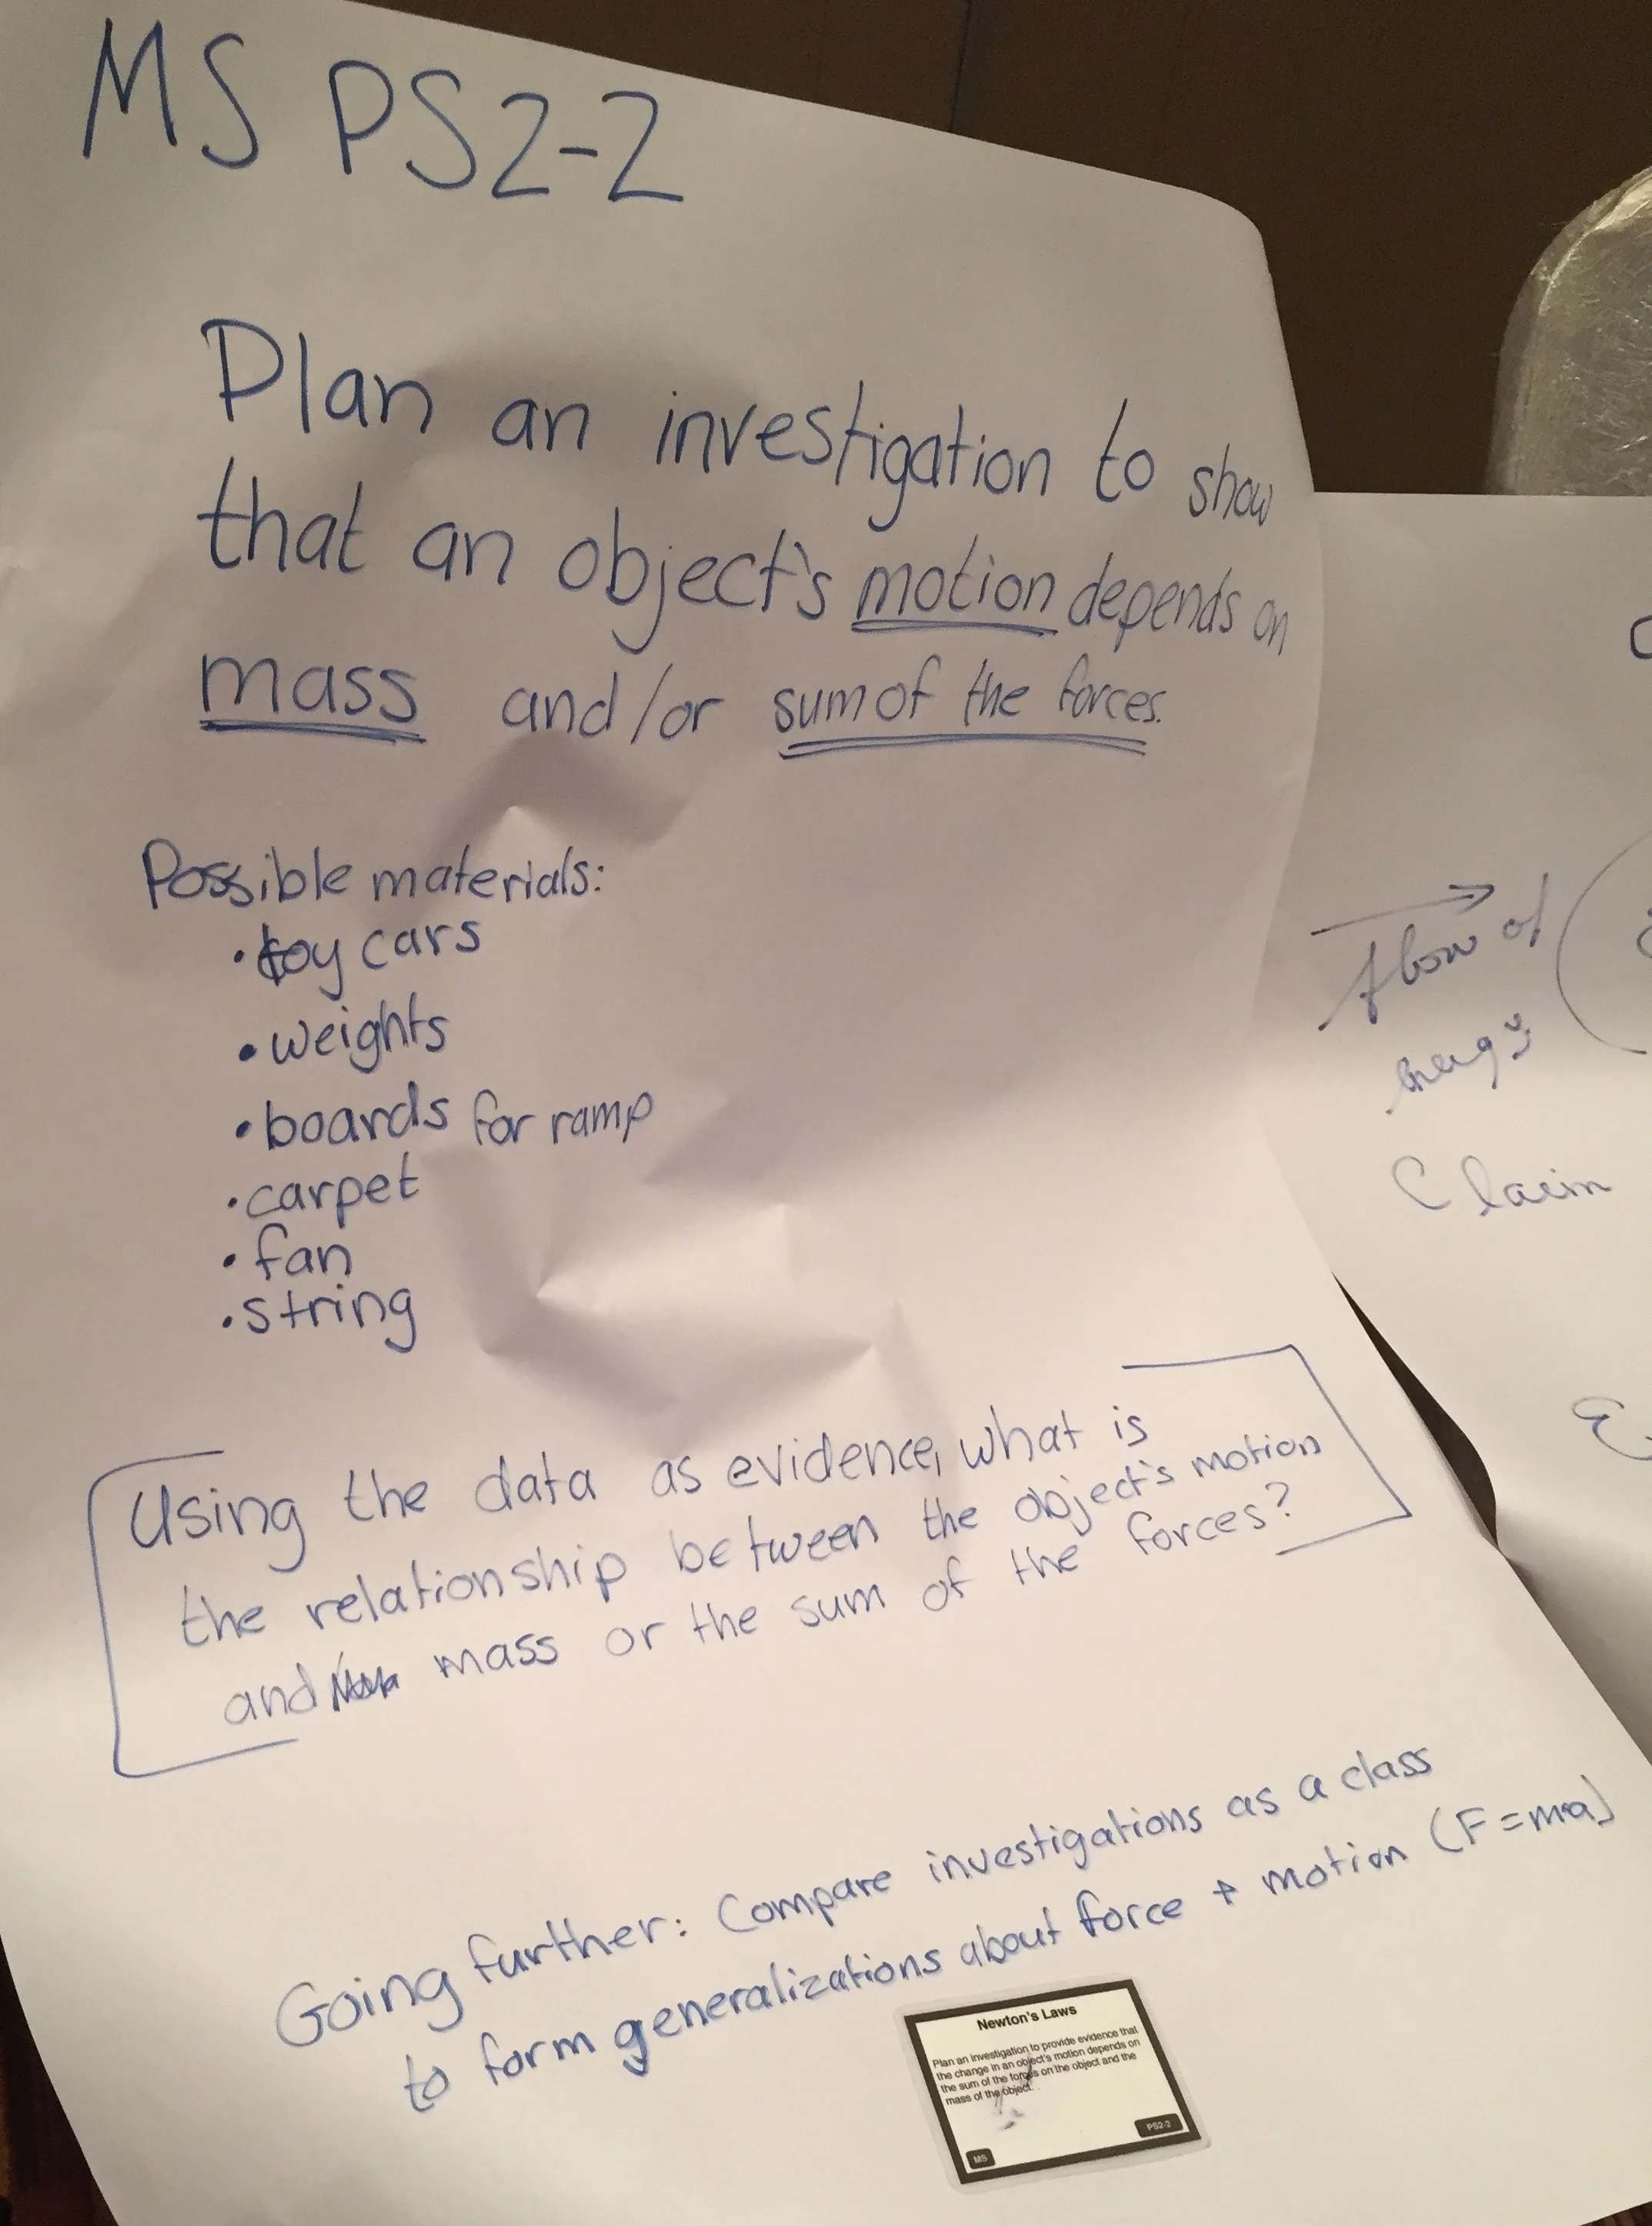 MS PS2-2
Plan an investigation to show
that an object's motion depends on
mass and/or sum of the forces.
Possible materials:
• toy cars
• weights
• boards for ramp
• carpet
• fan
• string
Using the data as evidence, what is
the relationship between the object's motion
and mass or the sum of the forces?
Going further: Compare investigations as a class
to form generalizations about force + motion (F=ma)
Newton's Laws
Plan an investigation to provide evidence that
the change in an object's motion depends on
the sum of the forces on the object and the
mass of the object.
MS
PS2-2
flow of
energy
Claim